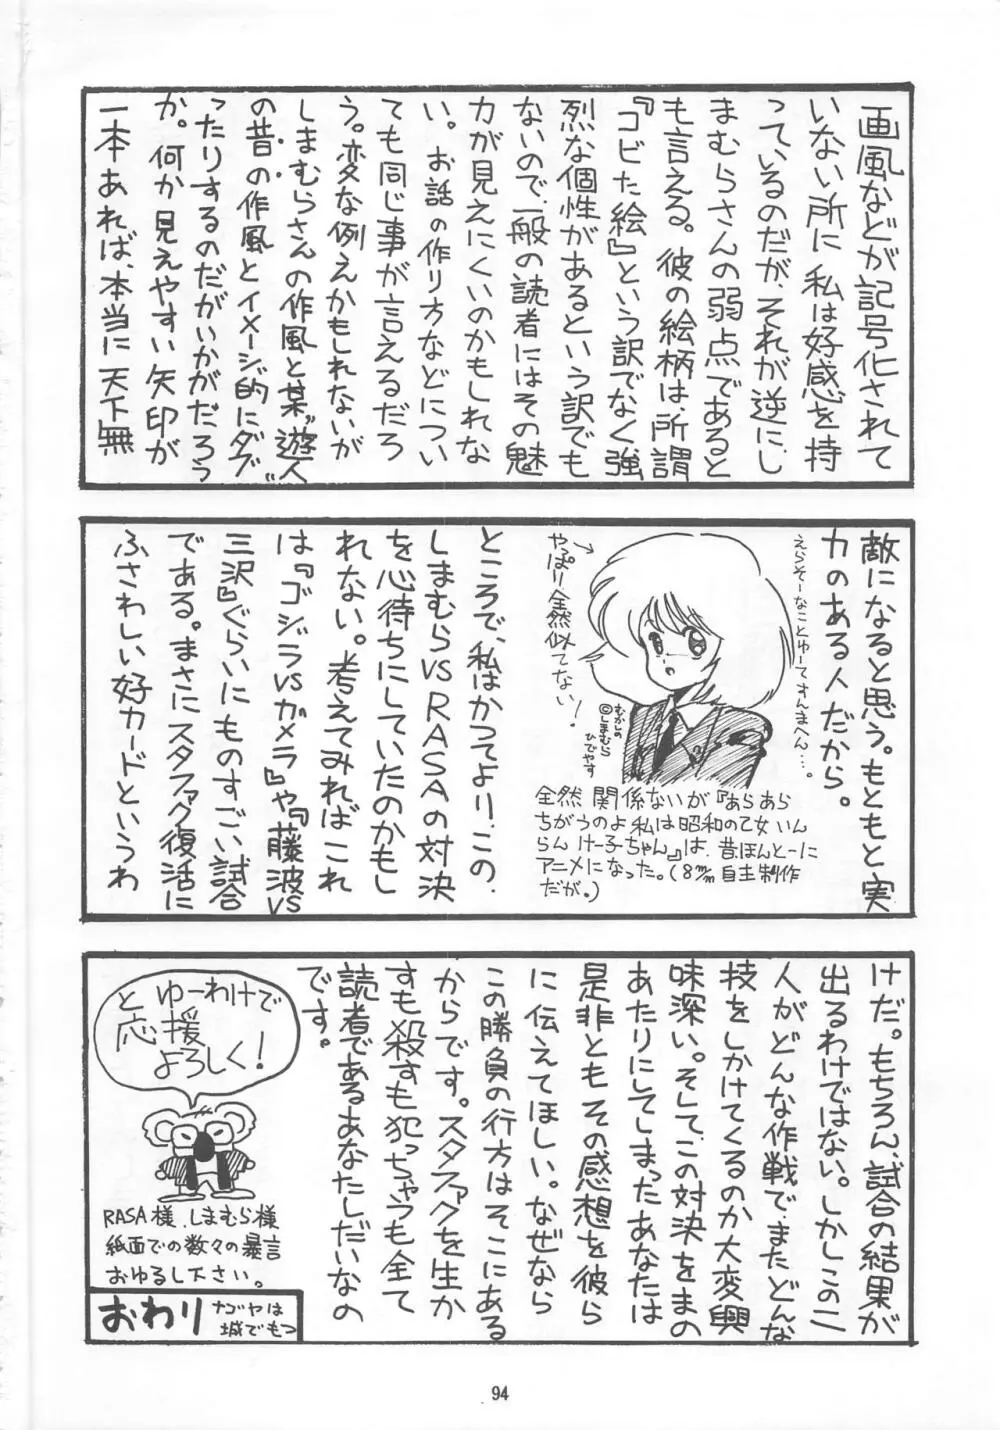 画風などが記号化されて
いない所に私は好感を持
っているのだが、それが逆にし
まむらさんの弱点であると
も言える。彼の絵柄は、所謂
『コビた絵』という訳でなく強
烈な個性があるという訳でも
ないので、一般の読者にはその魅
力が見えにくいのかもしれな
い。お話の作り方などについ
ても同じ事が言えるだろ
う。変な例えかもしれないが
しまむらさんの作風と某〝遊人
の昔の作風とイメージ的にダブ
ったりするのだがいかがだろう
か。何か見えやすい矢印が
一本あれば、本当に天下無
敵になると思う。もともと実
力のある人だから。
えらそーなことゆーてすんまへん…。
やっぱり全然似てない!
むかしの
©しまむら
ひでやす
全然関係ないが『あらあら
ちがうのよ私は昭和の乙女いん
らんけー子ちゃん』は、昔ほんとーに
アニメになった。(8m/m自主制作
だが。)
ところで、私はかつてより、この、
しまむらVSRASAの対決
を心待ちにしていたのかもし
れない。考えてみればこれ
は『ゴジラVSガメラ』や『藤波VS
三沢』ぐらいにものすごい試合
である。まさにスタファグ復活に
ふさわしい好カードというわ
けだ。もちろん、試合の結果が
出るわけではない。しかしこの二
人がどんな作戦で、またどんな
技をしかけてくるのか大変興
味深い。そして、この対決をまの
あたりにしてしまったあなたは
是非ともその感想を彼ら
に伝えてほしい。なぜなら
この勝負の行方はそこにある
からです。スタファグを生か
すも殺すも犯っちゃうも全て
読者であるあなたしだいなの
です。
と ゆーわけで
応援
よろしく!
RASA様、しまむら様
紙面での数々の暴言
おゆるし下さい。
おわり
ナゴヤは
城でもつ
94